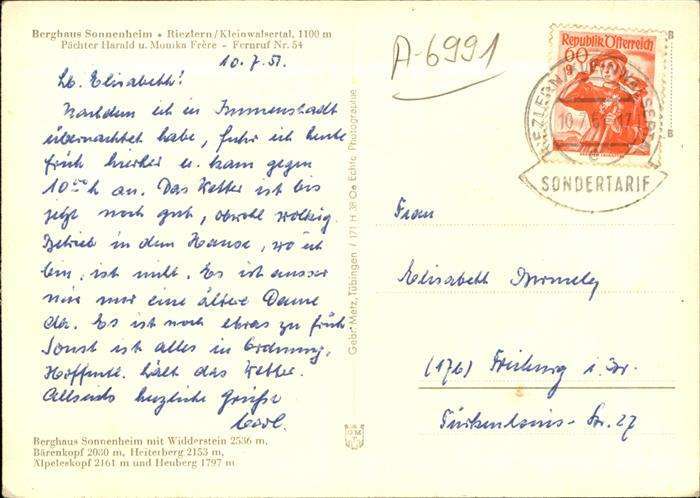 Berghaus Sonnenheim • Riezlern/Kleinwalsertal, 1100 m
Pächter Harald u. Monika Frère - Fernruf Nr. 54
10.7.51.
Lb. Elisabeth!
Nachdem ich in Immenstadt
übernachtet habe, fuhr ich heute
früh hierher u. kam gegen
10 00 h an. Das Wetter ist bis
jetzt noch gut, obwohl wolkig.
Betrieb in dem Hause, wo ich
bin, ist nicht. Es ist ausser
mir nur eine ältere Dame
da. Es ist noch etwas zu früh
Sonst ist alles in Ordnung.
Hoffentl. hält das Wetter.
Allseits herzliche Grüsse
Carl.
Berghaus Sonnenheim mit Widderstein 2536 m,
Bärenkopf 2080 m, Heiterberg 2153 m,
Xlpeleskopf 2161 m und Heuberg 1797 m
Gebr. Metz, Tübingen / 171 H 38 Oa Echte Photographie
A-6991
Republik Österreich
60
RIEZLERN
10.7.51
SONDERTARIF
B
B
Frau
Elisabeth
(17b) Freiburg i. Br.
Türkenlouis-Str. 27